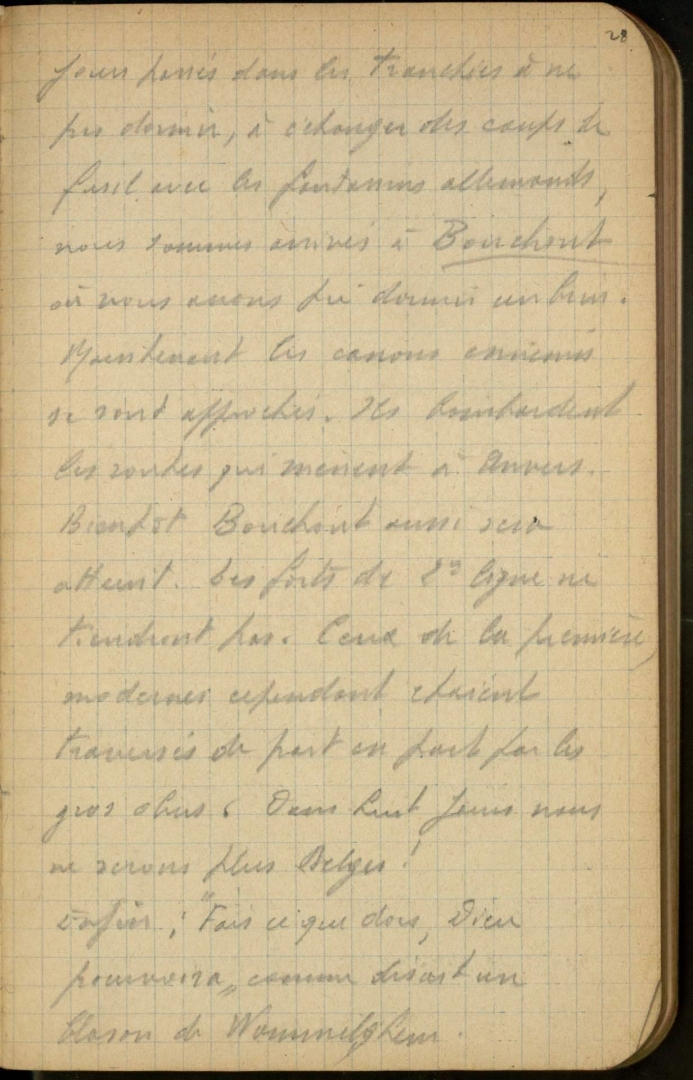 28
jours passés dans les tranchées à ne
pas dormir, à échanger des coups de
fusil avec les fantassins allemands,
nous sommes arrivés à Bouchout
où nous avons pu dormir un brin.
Maintenant les canons ennemis
se sont approchés. Ils bombardent
les routes qui mènent à Anvers.
Bientôt Bouchout aussi sera
atteint. Les forts de 2e ligne ne
tiendront pas. Ceux de la première,
modernes cependant étaient
traversés de part en part par les
gros obus. Dans huit jours nous
ne serons plus Belges !
Enfin ; "Fais ce que dois, Dieu
pourvoira„ comme disait un
blason de Wommelghem.